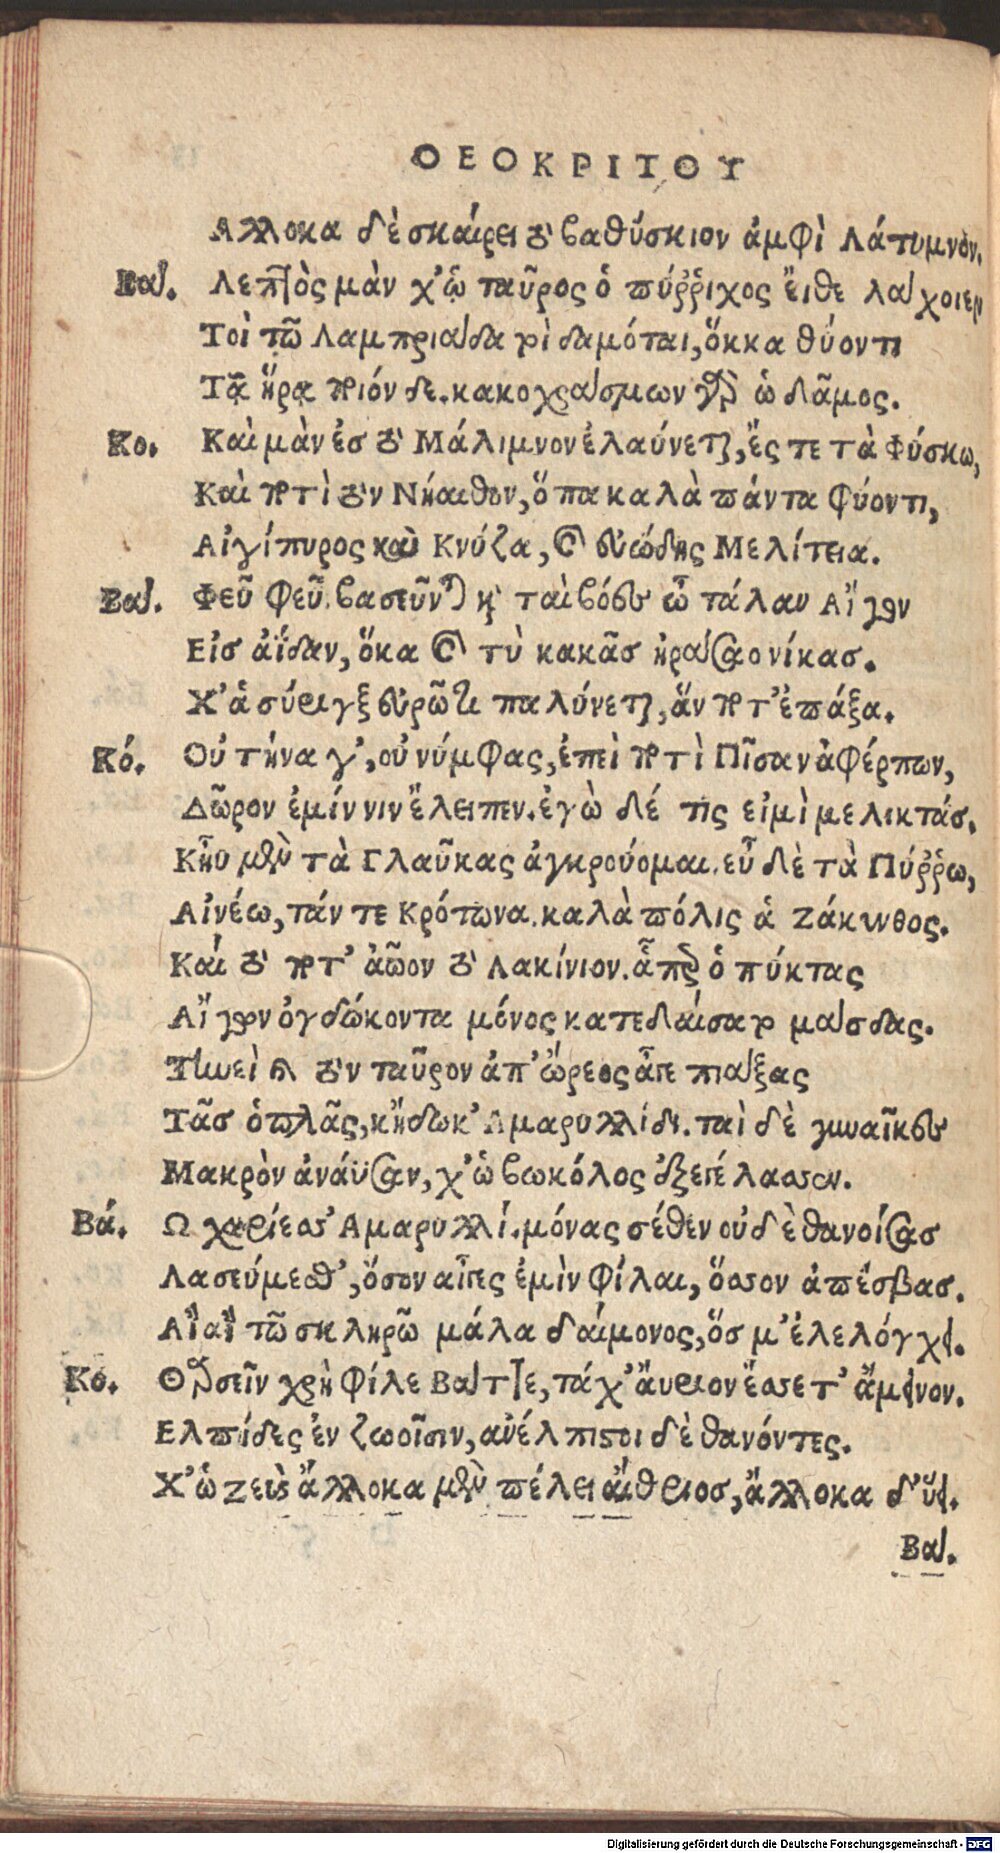 ΘΕΟΚΡΙΤΟΥ
Αλλοκα δὲ σκαίρει τὸ βαθύσκιον ἀμφὶ Λάτυμνον.
Βατ. Λεπτὸς μὰν χ' ᾡ ταῦρος ὁ πύῤῥιχος εἴιθε λαχοιεν
Τοὶ τῶ Λαμπριάδα τοὶ δαμόται, ὅκκα θύοντι
Τᾷ ἥρᾳ τοιόν δε. κακοχράσμων γὰρ ὡ δᾶμος.
Κο. Καὶ μὰν ἐσ τὸ Μάλιμνον ἐλαύνεται, ἔς τε τὰ Φύσκω,
Καὶ ποτὶ τὸν Νήαιθον, ὅπα καλὰ πάντα φύοντι,
Αἰγίπυρος καὶ Κνύζα, καὶ εὐώδης Μελίτεια.
Βατ. Φεῦ φεῦ. βασεῦνται καὶ ταὶ βόες ὦ τάλαν Αἴγων
Εἰσ ἀΐδαν, ὅκα καὶ τὺ κακᾶσ ἠράσαο νίκασ.
Χ' ἁ σύριγξ εὐρῶτι παλύνεται, ἅν ποτ' ἐπάξα.
Κό. Οὐ τήνα γ', οὐ νύμφας, ἐπεὶ ποτὶ Πῖσαν ἀφέρπων,
Δῶρον ἐμίν νιν ἔλειπεν. ἐγὼ δέ τις εἰμὶ μελικτάσ.
Κἦυ μὲν τὰ Γλαῦκας ἀγκρούομαι. εὖ δὲ τὰ Πύῤῥω,
Αἰνέω, τάν τε Κρότωνα. καλὰ πόλις ἁ Ζάκυνθος.
Καὶ τὸ ποτ' ἀῶον τὸ Λακίνιον. ἇπερ ὁ πύκτας
Αἴγων ὀγδώκοντα μόνος κατεδαίσατο μάσδας.
Τηνεὶ καὶ τὸν ταῦρον ἀπ' ὤρεος ἆγε πιάξας
Τᾶσ ὁπλᾶς, κἤδωκ' Αμαρυλλίδι. ταὶ δὲ γυναῖκες
Μακρὸν ἀνάϋσαν, χ' ὡ βωκόλος ἐξεγέλασσεν.
Βά. Ω χαρίεσσ' Αμαρυλλί. μόνας σέθεν οὐδὲ θανοίσασ
Λασεύμεσθ', ὅσον αἶγες ἐμὶν φίλαι, ὅσσον ἀπέσβασ.
Αἲ αἲ τῶ σκληρῶ μάλα δαίμονος, ὅσ μ' ἐλελόγχει.
Κο. Θαρσεῖν χρὴ φίλε Βάττε, τάχ' ἄυριον ἔσσετ' ἄμεινον.
Ελπίδες ἐν ζωοῖσιν, ανέλπιστοι δὲ θανόντες.
Χ' ὡ ζεὺς ἄλλοκα μὲν πέλει αἴθριοσ, ἄλλοκα δ' ὕει.
Βατ.
Digitalisierung gefördert durch die Deutsche Forschungsgemeinschaft - DFG